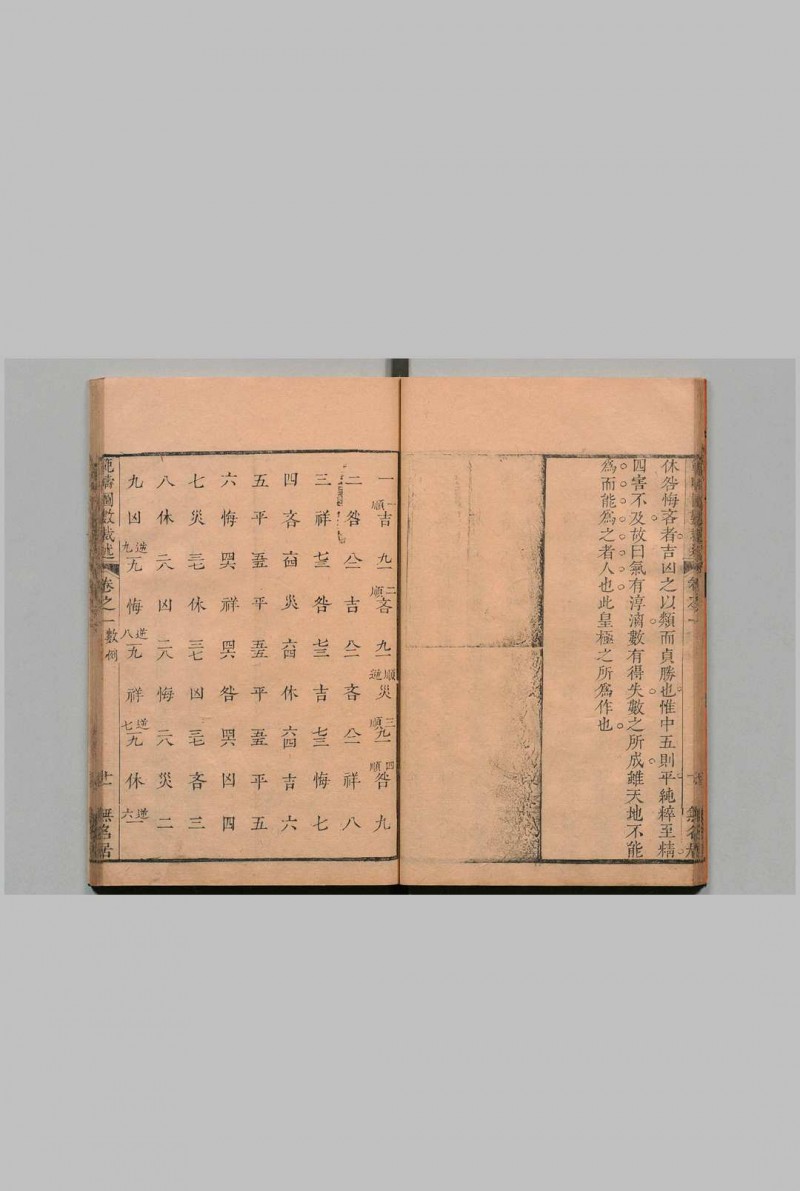 休咎悔吝者吉凶之以類而貞勝也惟中五則平純粹至精
四害不及故曰氣有淳漓數有得失數之所成雖天地不能
爲而能爲之者人也此皇極之所爲作也
一 一順 吉 九一 二順 吝 九一 順逆 災 三順 九一 四順 咎 九
二 咎 八二 吉 八二 吝 八二 祥 八
三 祥 七三 咎 七三 吉 七三 悔 七
四 吝 六四 災 六四 休 六四 吉 六
五 平 五五 平 五五 平 五五 平 五
六 悔 四六 祥 四六 咎 四六 凶 四
七 災 三七 休 三七 凶 三七 吝 三
八 休 二八 凶 二八 悔 二八 災 二
九 凶 逆九 一九 悔 逆八 一九 祥 逆七 一九 休 逆六 一
範疇圖數裁述 卷之一 數 無名居